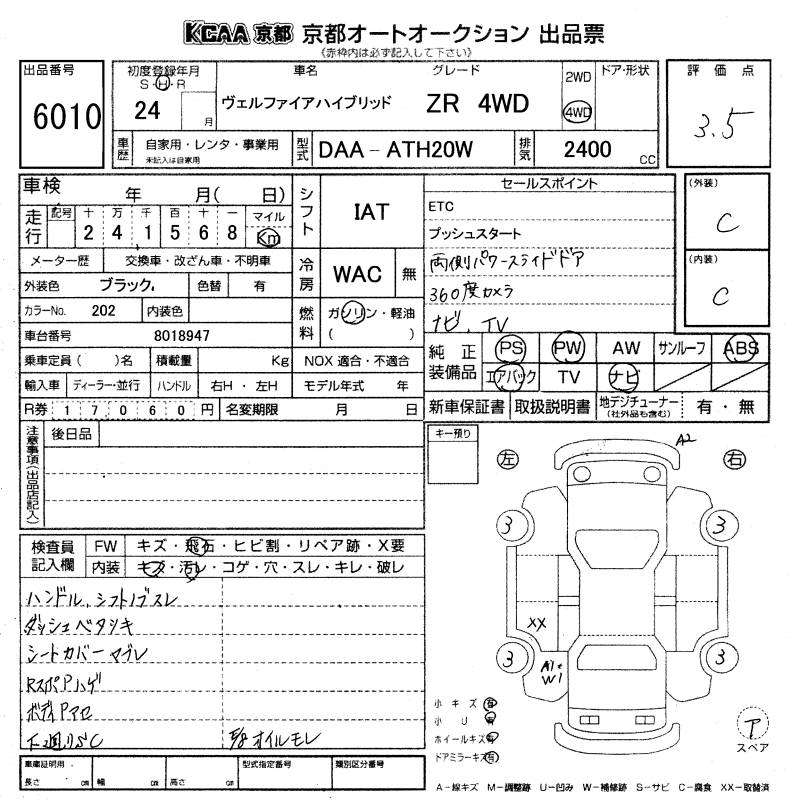 KCAA 京都 京都オートオークション 出品票
《赤枠内は必ず記入して下さい》
出品番号
6010
初度登録年月
S・H・R
24
月
車名
ヴェルファイアハイブリッド
グレード
ZR 4WD
2WD
4WD
ドア・形状
評価点
3.5
車歴
自家用・レンタ・事業用
未記入は自家用
型式
DAA-ATH20W
排気
2400
CC
車検 年 月( 日)
走行
記号 十 万 千 百 十 一 マイル
2 4 1 5 6 8 Km
シフト
IAT
メーター歴 交換車・改ざん車・不明車
外装色 ブラック 色替 有
冷房
WAC
無
カラーNo. 202 内装色
車台番号 8018947
燃料
ガソリン・軽油
( )
乗車定員( )名 積載量 Kg NOX 適合・不適合
輸入車 ディーラー・並行 ハンドル 右H・左H モデル年式 年
R券 17060 円 名変期限 月 日
セールスポイント
ETC
プッシュスタート
両側パワースライドドア
360度カメラ
ナビ、TV
(外装)
C
(内装)
C
純正装備品
PS PW AW サンルーフ ABS
エアバック TV ナビ
新車保証書 取扱説明書 地デジチューナー
(社外品も含む)
有・無
注意事項(出品店記入)
後日品
キー預り
左
右
A2
3
3
XX
3
3
A1
W1
検査員記入欄
FW キズ・飛石・ヒビ割・リペア跡・X要
内装 キズ・汚レ・コゲ・穴・スレ・キレ・破レ
ハンドル、シフトノブスレ
ダッシュベタツキ
シートカバーマクレ
RスポPハゲ
ボディPアセ
下廻りSC
オイルモレ
小キズ有
小U有
ホイールキズ有
ドアミラーキズ有
ア
スペア
車庫証明用
長さ cm 幅 cm 高さ cm
型式指定番号
類別区分番号
A-線キズ M-調整跡 U-凹み W-補修跡 S-サビ C-腐食 XX-取替済